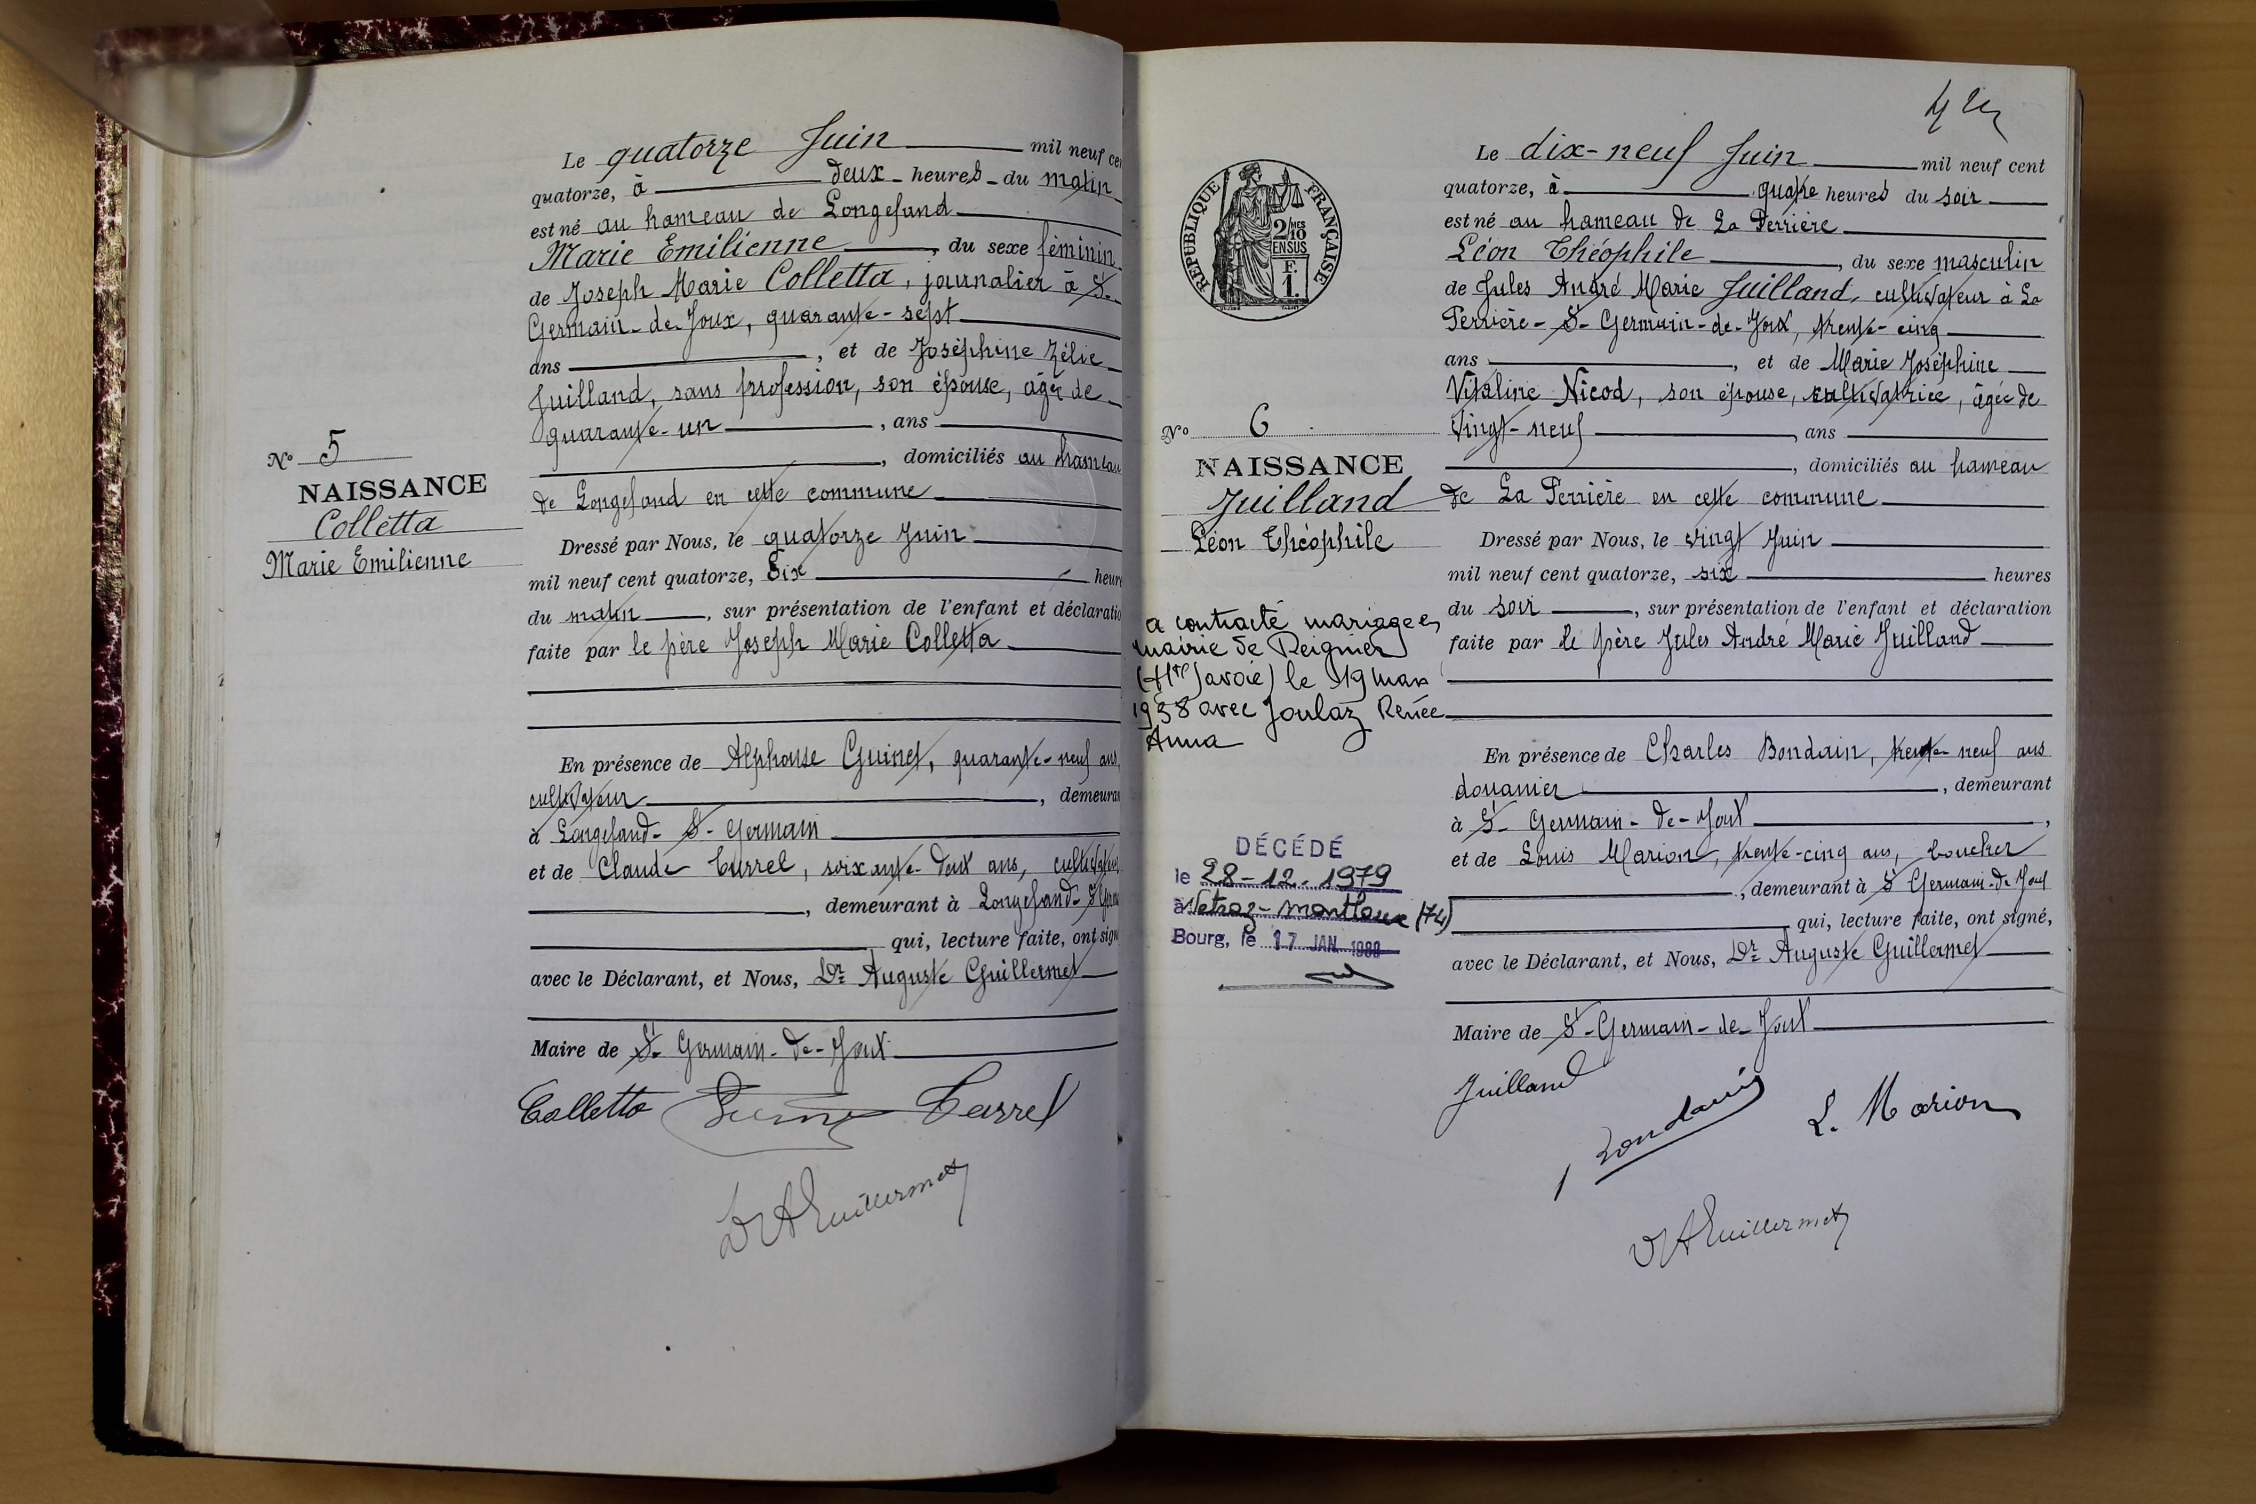 Le quatorze Juin mil neuf cen
quatorze, à deux heures du matin
est né au hameau de Longefand
Marie Emilienne, du sexe féminin
de Joseph Marie Colletta, journalier à St-
Germain-de-Joux, quarante-sept
ans, et de Joséphine Zélie
Juilland, sans profession, son épouse, âgée de
quarante-un, ans
, domiciliés au hameau
de Longefand en cette commune
Nº 5
NAISSANCE
Colletta
Marie Emilienne
Dressé par Nous, le quatorze Juin
mil neuf cent quatorze, Six heure
du matin, sur présentation de l'enfant et déclaratio
faite par le père Joseph Marie Colletta
En présence de Alphonse Guinet, quarante-neuf ans,
cultivateur, demeuran
à Longefand-St-Germain
et de Claude Curvel, soixante-deux ans, cultivateur
, demeurant à Longefand-St Germ
qui, lecture faite, ont sign
avec le Déclarant, et Nous, Dr Auguste Guillermet
Maire de St-Germain-de-Joux
Colletta
DAGuillermet
Le dix-neuf Juin mil neuf cent
quatorze, à quatre heures du soir
est né au hameau de La Perrière
Léon Théophile, du sexe masculin
de Jules André Marie Juilland, cultivateur à La
Perrière-St-Germain-de-Joux, trente-cinq
ans, et de Marie Joséphine
Vitaline Nicod, son épouse, cultivatrice, âgée de
vingt-neuf, ans
, domiciliés au hameau
de La Perrière en cette commune
RÉPUBLIQUE FRANÇAISE
2/10 MES
EN SUS
F.
1.
Nº 6
NAISSANCE
Juilland
Léon Théophile
a contracté mariage en
mairie de Reignier
(Hte Savoie) le 19 mars
1938 avec Joulaz Renée
Anna
DÉCÉDÉ
le 28-12-1979
à Vetraz-monthoux (74)
Bourg, le 17 JAN. 1980
Dressé par Nous, le vingt Juin
mil neuf cent quatorze, six heures
du soir, sur présentation de l'enfant et déclaration
faite par le père Jules André Marie Juilland
En présence de Charles Bondain, trente-neuf ans
douanier, demeurant
à St-Germain-de-Joux,
et de Louis Marion, trente-cinq ans, boucher
, demeurant à St Germain-de Joux
qui, lecture faite, ont signé,
avec le Déclarant, et Nous, Dr Auguste Guillermet
Maire de St-Germain-de-Joux
Juilland
L. Marion
DAGuillermet